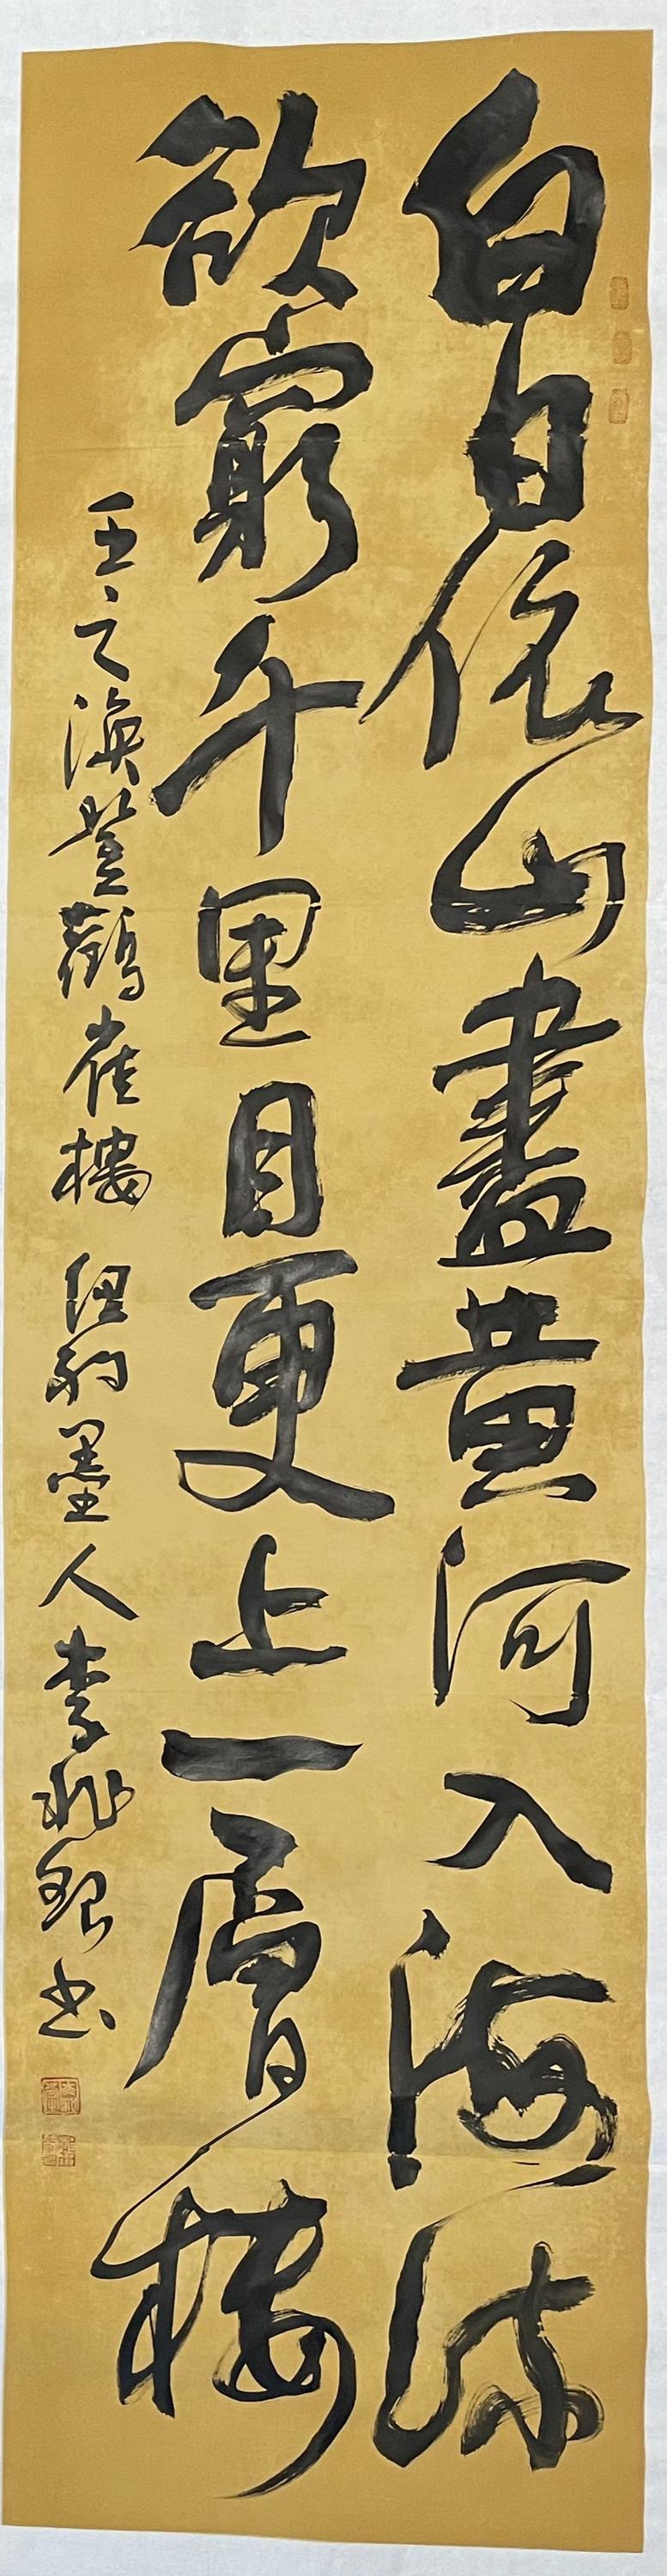 白日依山盡黃河入海流
欲窮千里目更上一層樓
王之渙登鸛雀樓 紐約墨人李兆銀書